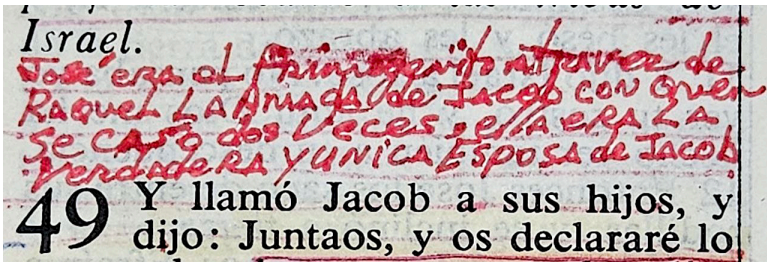 Israel.
José era el primogenito atravez de
Raquel LA AMADA de JACOB CON QUIEN
Se CASÓ dos Veces, ella ERA LA
Verdadera Y UNICA ESPOSA de JACOB
49 Y llamó Jacob a sus hijos, y
dijo: Juntaos, y os declararé lo